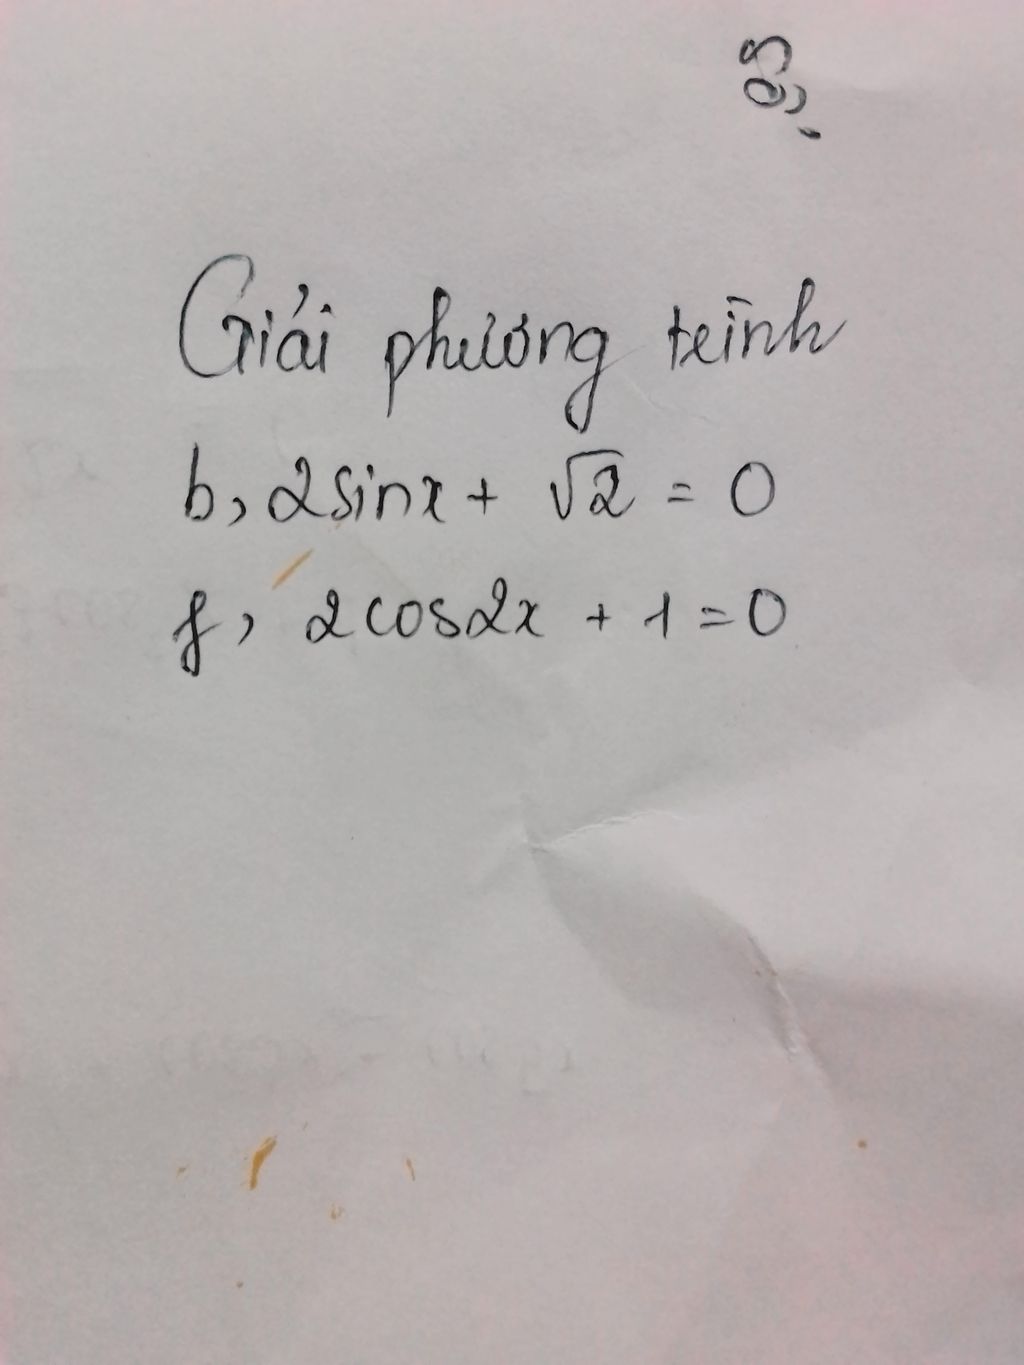 Giải phương trình
b, 2sinx + √2 = 0
f, 2cos2x + 1 = 0